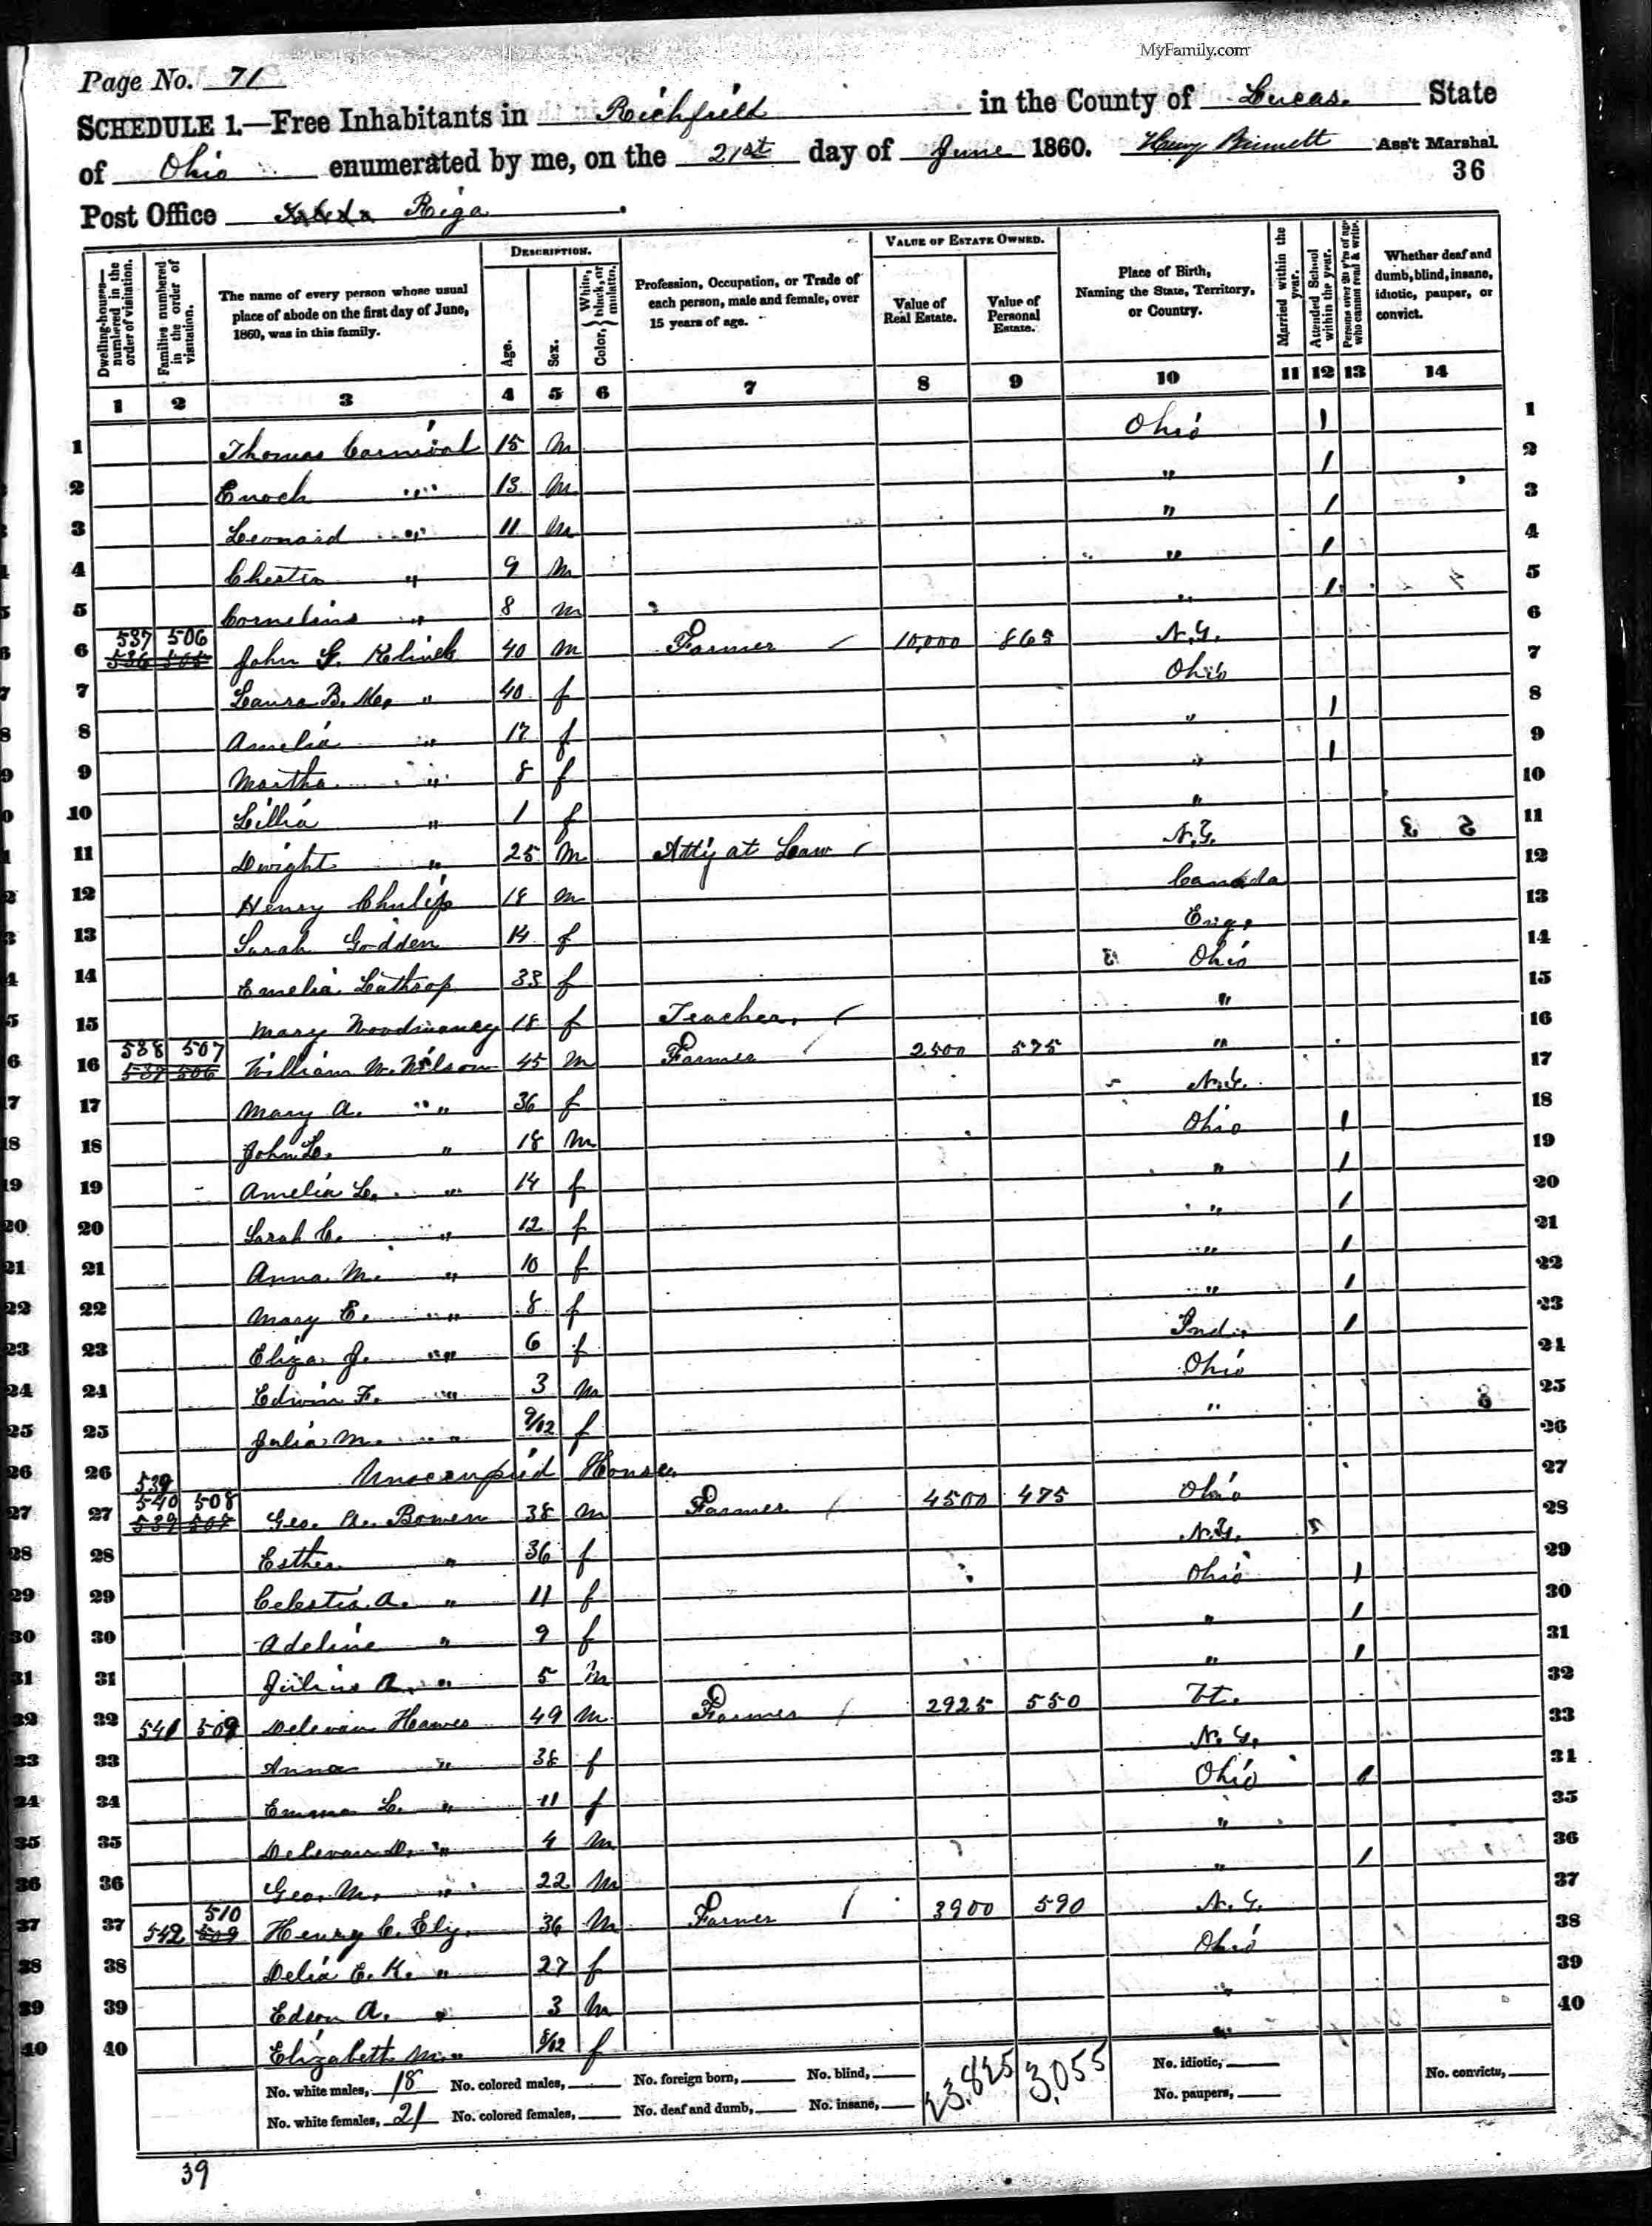 MyFamily.com
Page No. 71
SCHEDULE 1.—Free Inhabitants in Richfield in the County of Lucas. State
of Ohio enumerated by me, on the 21st day of June 1860. Henry Ass't Marshal.
36
Post Office Riga
Dwelling-houses—numbered in the order of visitation.
Families numbered in the order of visitation.
The name of every person whose usual place of abode on the first day of June, 1860, was in this family.
DESCRIPTION.
Age.
Sex.
Color, White, black, or mulatto.
Profession, Occupation, or Trade of each person, male and female, over 15 years of age.
VALUE OF ESTATE OWNED.
Value of Real Estate.
Value of Personal Estate.
Place of Birth, Naming the State, Territory, or Country.
Married within the year.
Attended School within the year.
Persons over 20 y'rs of age who cannot read & write.
Whether deaf and dumb, blind, insane, idiotic, pauper, or convict.
1 2 3 4 5 6 7 8 9 10 11 12 13 14
1 Thomas 15 m Ohio 1 1
2 Enoch " 13 m " 1 2
3 Leonard " 11 m " 1 3
4 Chester " 9 m " 1 4
5 Cornelius " 8 m " 1 5
537 506
6 536 505 John G. 40 m Farmer 10,000 865 N.Y. 6
7 Laura B. " 40 f Ohio 7
8 Amelia " 17 f " 1 8
9 Martha " 8 f " 1 9
10 Lillia " 1 f " 10
11 Dwight " 25 m Atty at Law N.Y. 11
12 Henry 18 m Canada 12
13 Sarah Godden 14 f Eng. 13
14 Emelia Lathrop 33 f Ohio 14
15 Mary 18 f Teacher, " 15
538 507
16 537 506 William W. Wilson 45 m Farmer 2500 575 " 16
17 Mary A. " 36 f N.Y. 17
18 John L. " 18 m Ohio 1 18
19 Amelia L. " 14 f " 1 19
20 Sarah C. " 12 f " 1 20
21 Anna M. " 10 f " 1 21
22 Mary E. " 8 f " 1 22
23 Eliza J. " 6 f Ind. 1 23
24 Edwin F. " 3 m Ohio 24
25 Julia M. " 9/12 f " 25
26 539 Unoccupied House 26
540 508
27 539 507 Geo. A. Bowen 38 m Farmer 4500 475 Ohio 27
28 Esther " 36 f N.Y. 28
29 Celestia A. " 11 f Ohio 1 29
30 Adeline " 9 f " 1 30
31 Julius A. " 5 m " 1 31
32 541 509 Delevan Hawes 49 m Farmer 2925 550 Vt. 32
33 Anna " 38 f N.Y. 33
34 Emma L. " 11 f Ohio 1 34
35 Delevan D. " 4 m " 35
36 Geo. M. " 22 m " 1 36
510
37 542 509 Henry C. Ely 36 m Farmer 3900 590 N.Y. 37
38 Delia E. K. " 27 f Ohio 38
39 Edson A. " 3 m " 39
40 Elizabeth M. " f " 40
No. white males, 18 No. colored males, No. foreign born, No. blind, 23,825 3,055 No. idiotic, No. convicts,
No. white females, 21 No. colored females, No. deaf and dumb, No. insane, No. paupers,
39